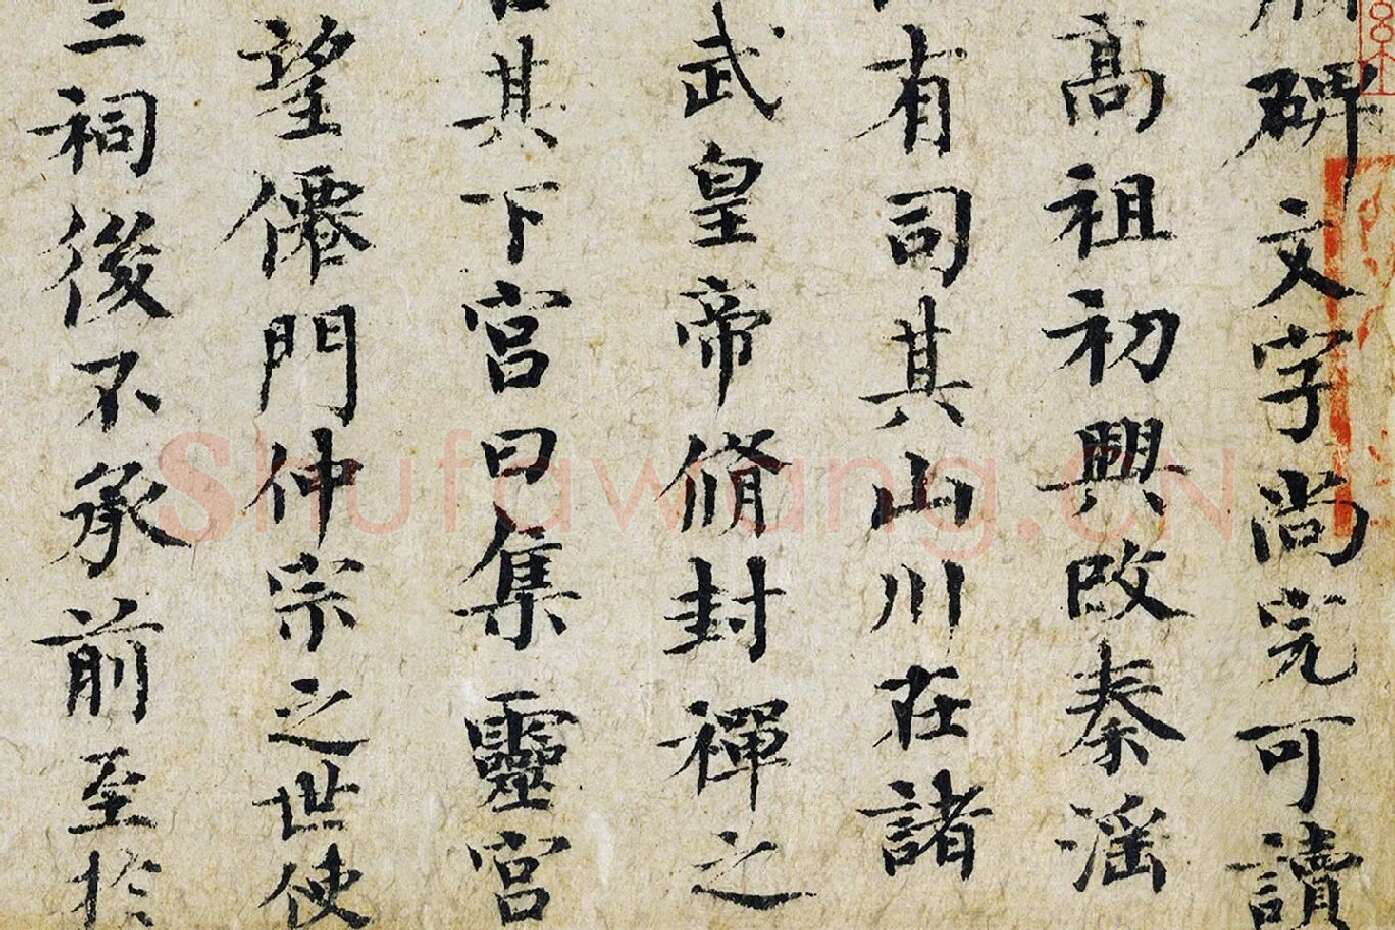 碑文字尚完可讀
高祖初興改秦淫
有司其山川在諸
武皇帝脩封禪之
其下宮曰集靈宮
望僊門仲宗之世使
三祠後不承前至於
Shufawang.CN